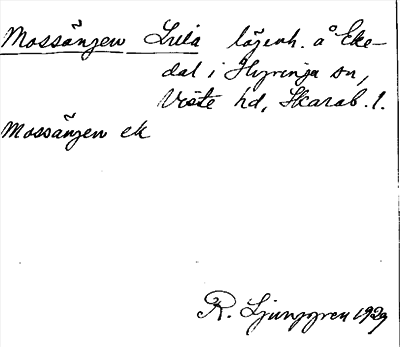 Mossängen Lilla lägenh. å Eke-
dal i Hyringa sn,
Viste hd, Skarab. l.
Mossängen ek
R. Ljunggren 1929